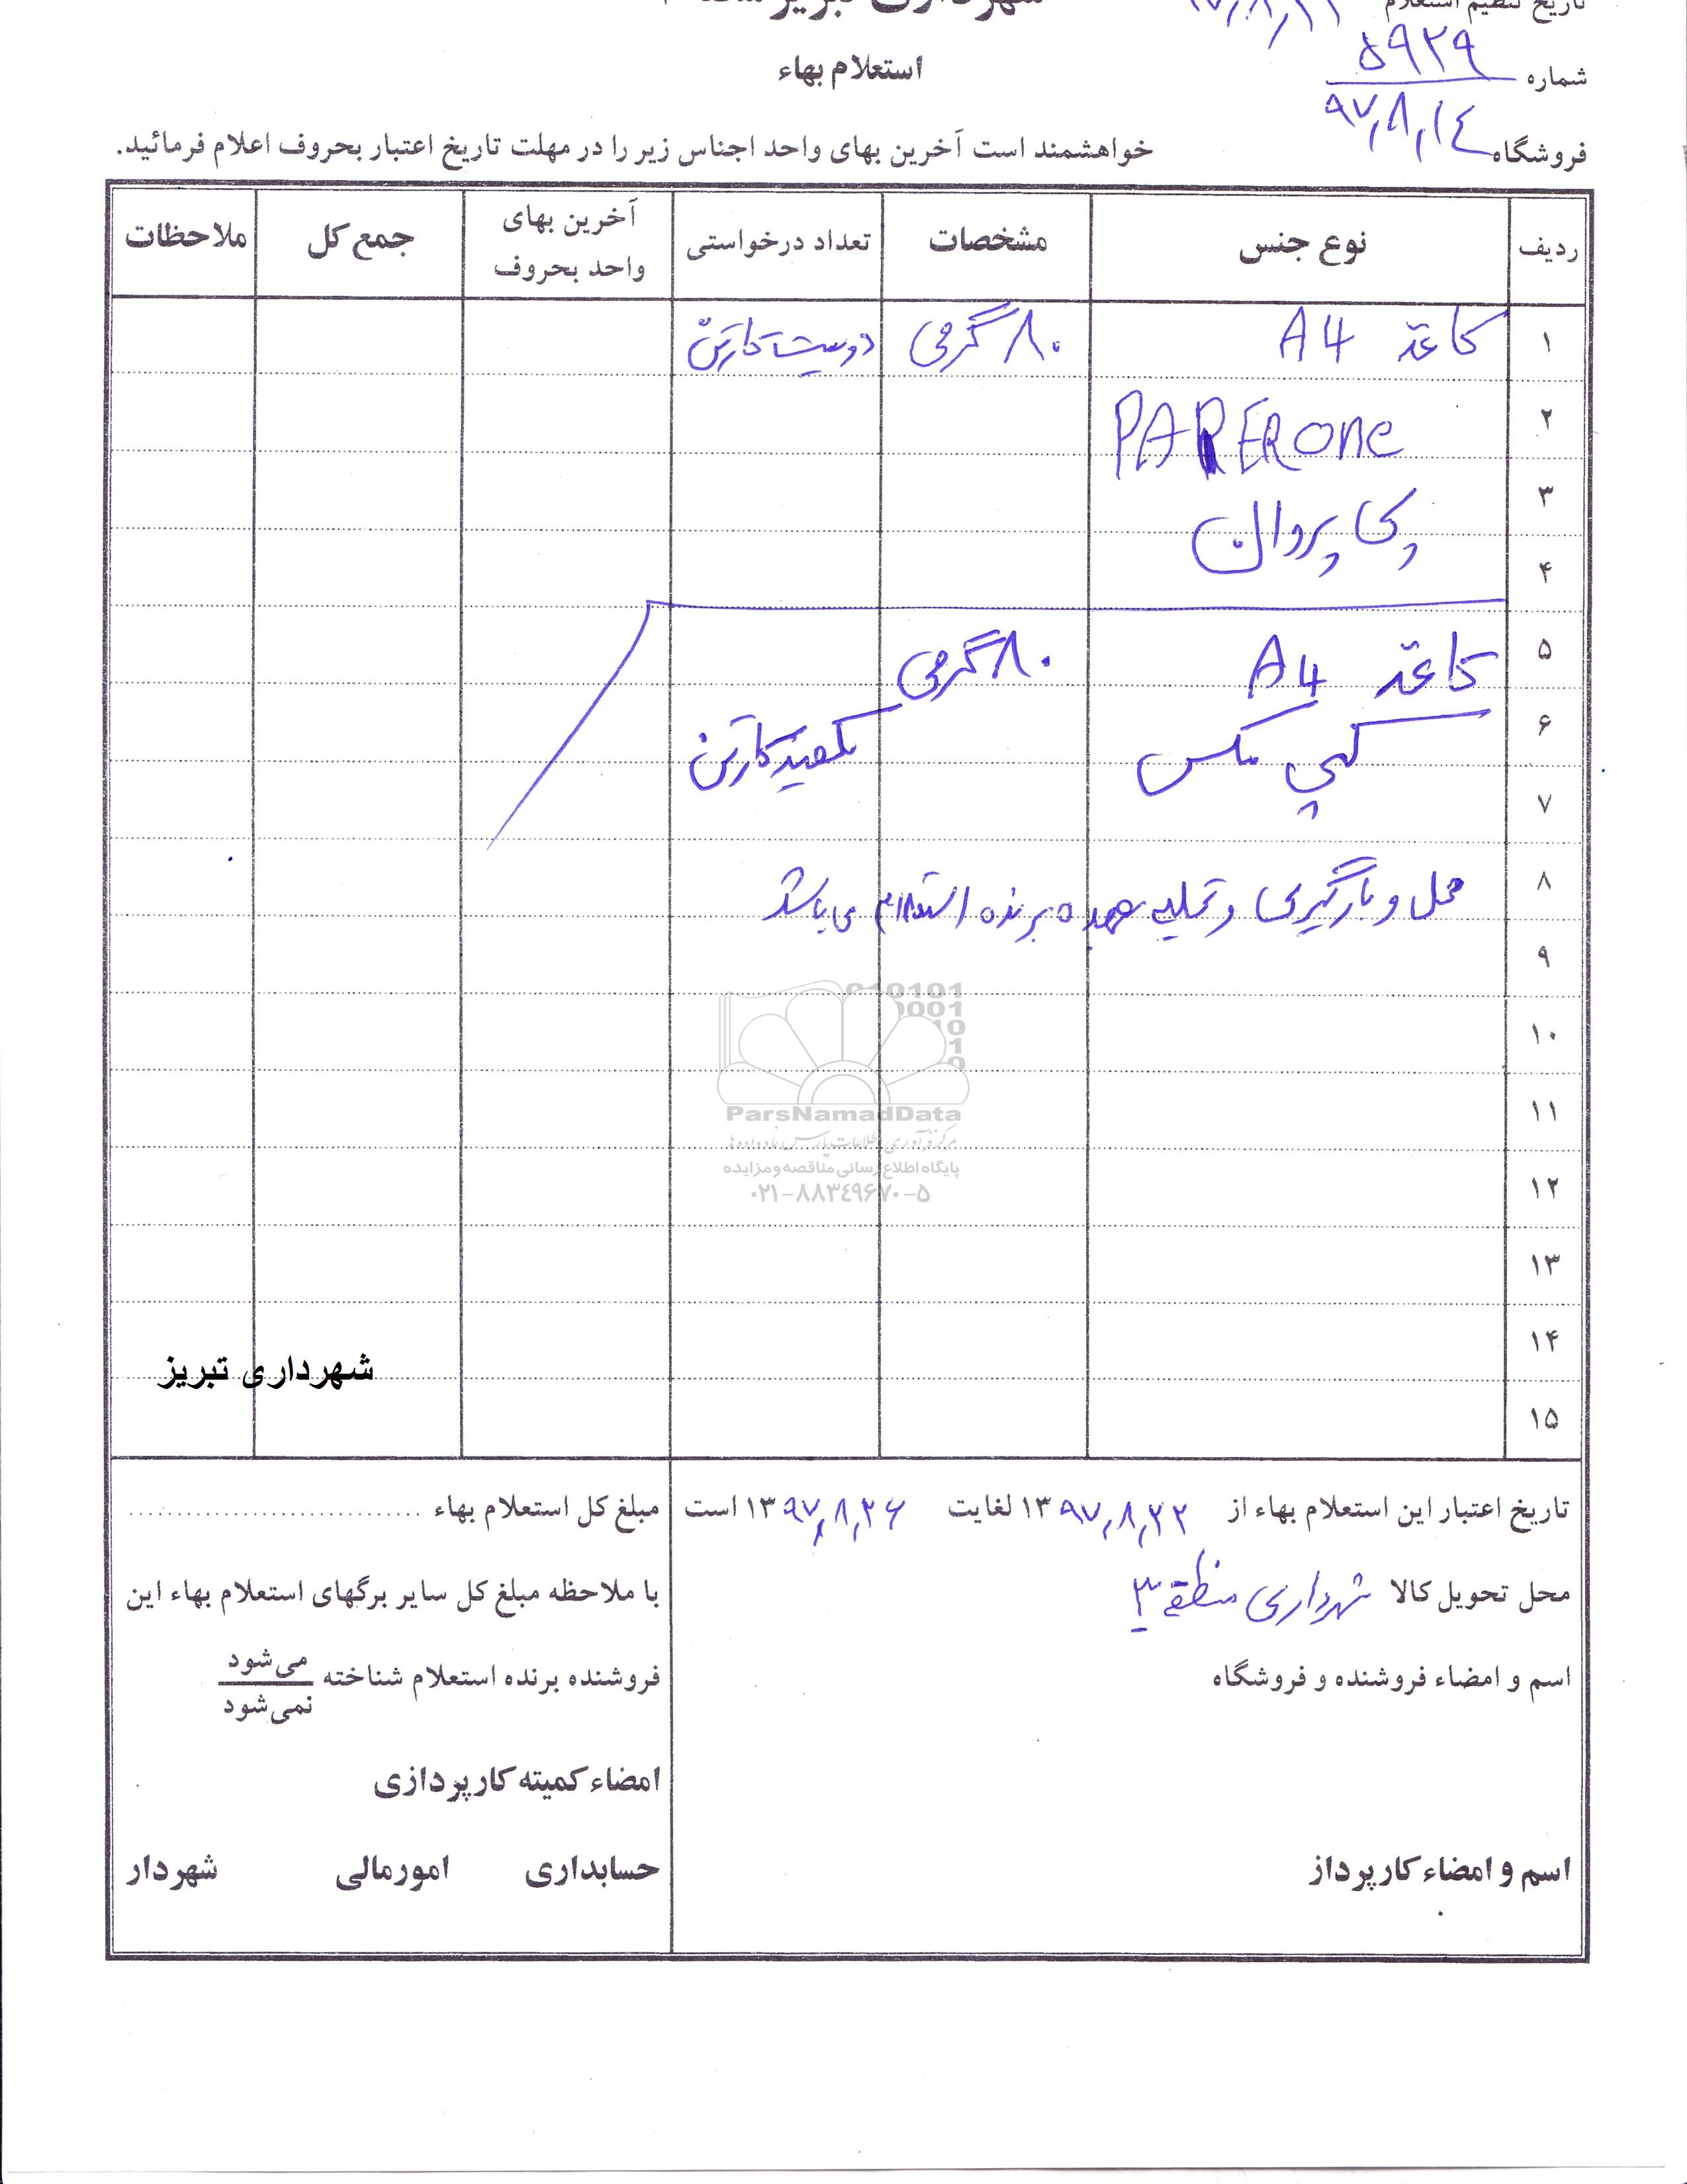 شهرداری تبریز
تاریخ تنظیم استعلام
استعلام بهاء
شماره ۵۹۲۹
۹۷,۸,۱۴
فروشگاه
خواهشمند است آخرین بهای واحد اجناس زیر را در مهلت تاریخ اعتبار بحروف اعلام فرمائید.
ردیف نوع جنس مشخصات تعداد درخواستی آخرین بهای واحد بحروف جمع کل ملاحظات
۱ کاغذ A4 ۸۰ گرمی دویست کارتن
۲ PAPERone
۳ پی پروان
۴
۵ کاغذ A4 ۸۰ گرمی
۶ کپی مکس یکصد کارتن
۷
۸ حمل و بارگیری و تخلیه عهده برنده استعلام می باشد
۹
010101
0001
10
1
0
۱۰
ParsNamadData
۱۱
مرکز فرآوری اطلاعات پارس نماد داده ها
پایگاه اطلاع رسانی مناقصه و مزایده
۰۲۱-۸۸۳۴۹۶۷۰-۵
۱۲
۱۳
۱۴
شهرداری تبریز
۱۵
تاریخ اعتبار این استعلام بهاء از ۱۳۹۷,۸,۲۲ لغایت ۱۳۹۷,۸,۲۶ است
محل تحویل کالا شهرداری منطقه ۳
اسم و امضاء فروشنده و فروشگاه
اسم و امضاء کارپرداز
مبلغ کل استعلام بهاء ..............................
با ملاحظه مبلغ کل سایر برگهای استعلام بهاء این
فروشنده برنده استعلام شناخته می‌شود
نمی‌شود
امضاء کمیته کارپردازی
حسابداری امورمالی شهردار